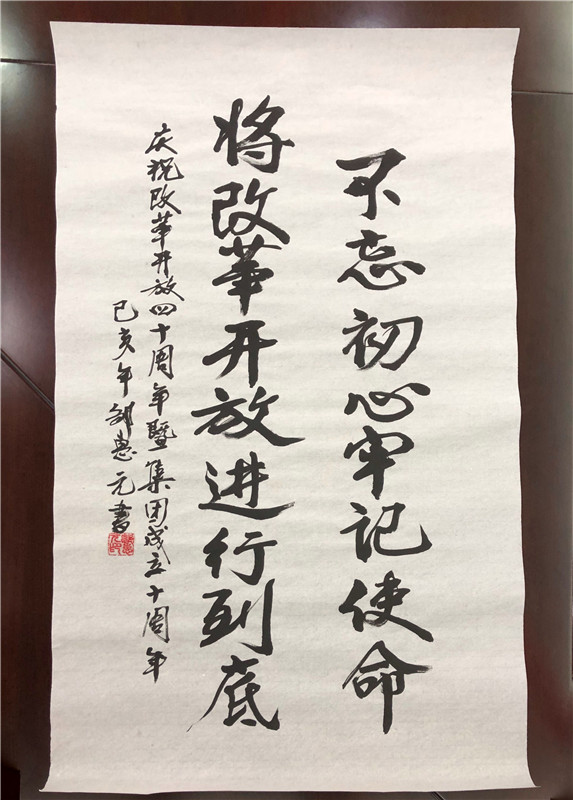 不忘初心牢记使命
将改革开放进行到底
庆祝改革开放四十周年暨集团成立十周年
己亥年邹惠元書